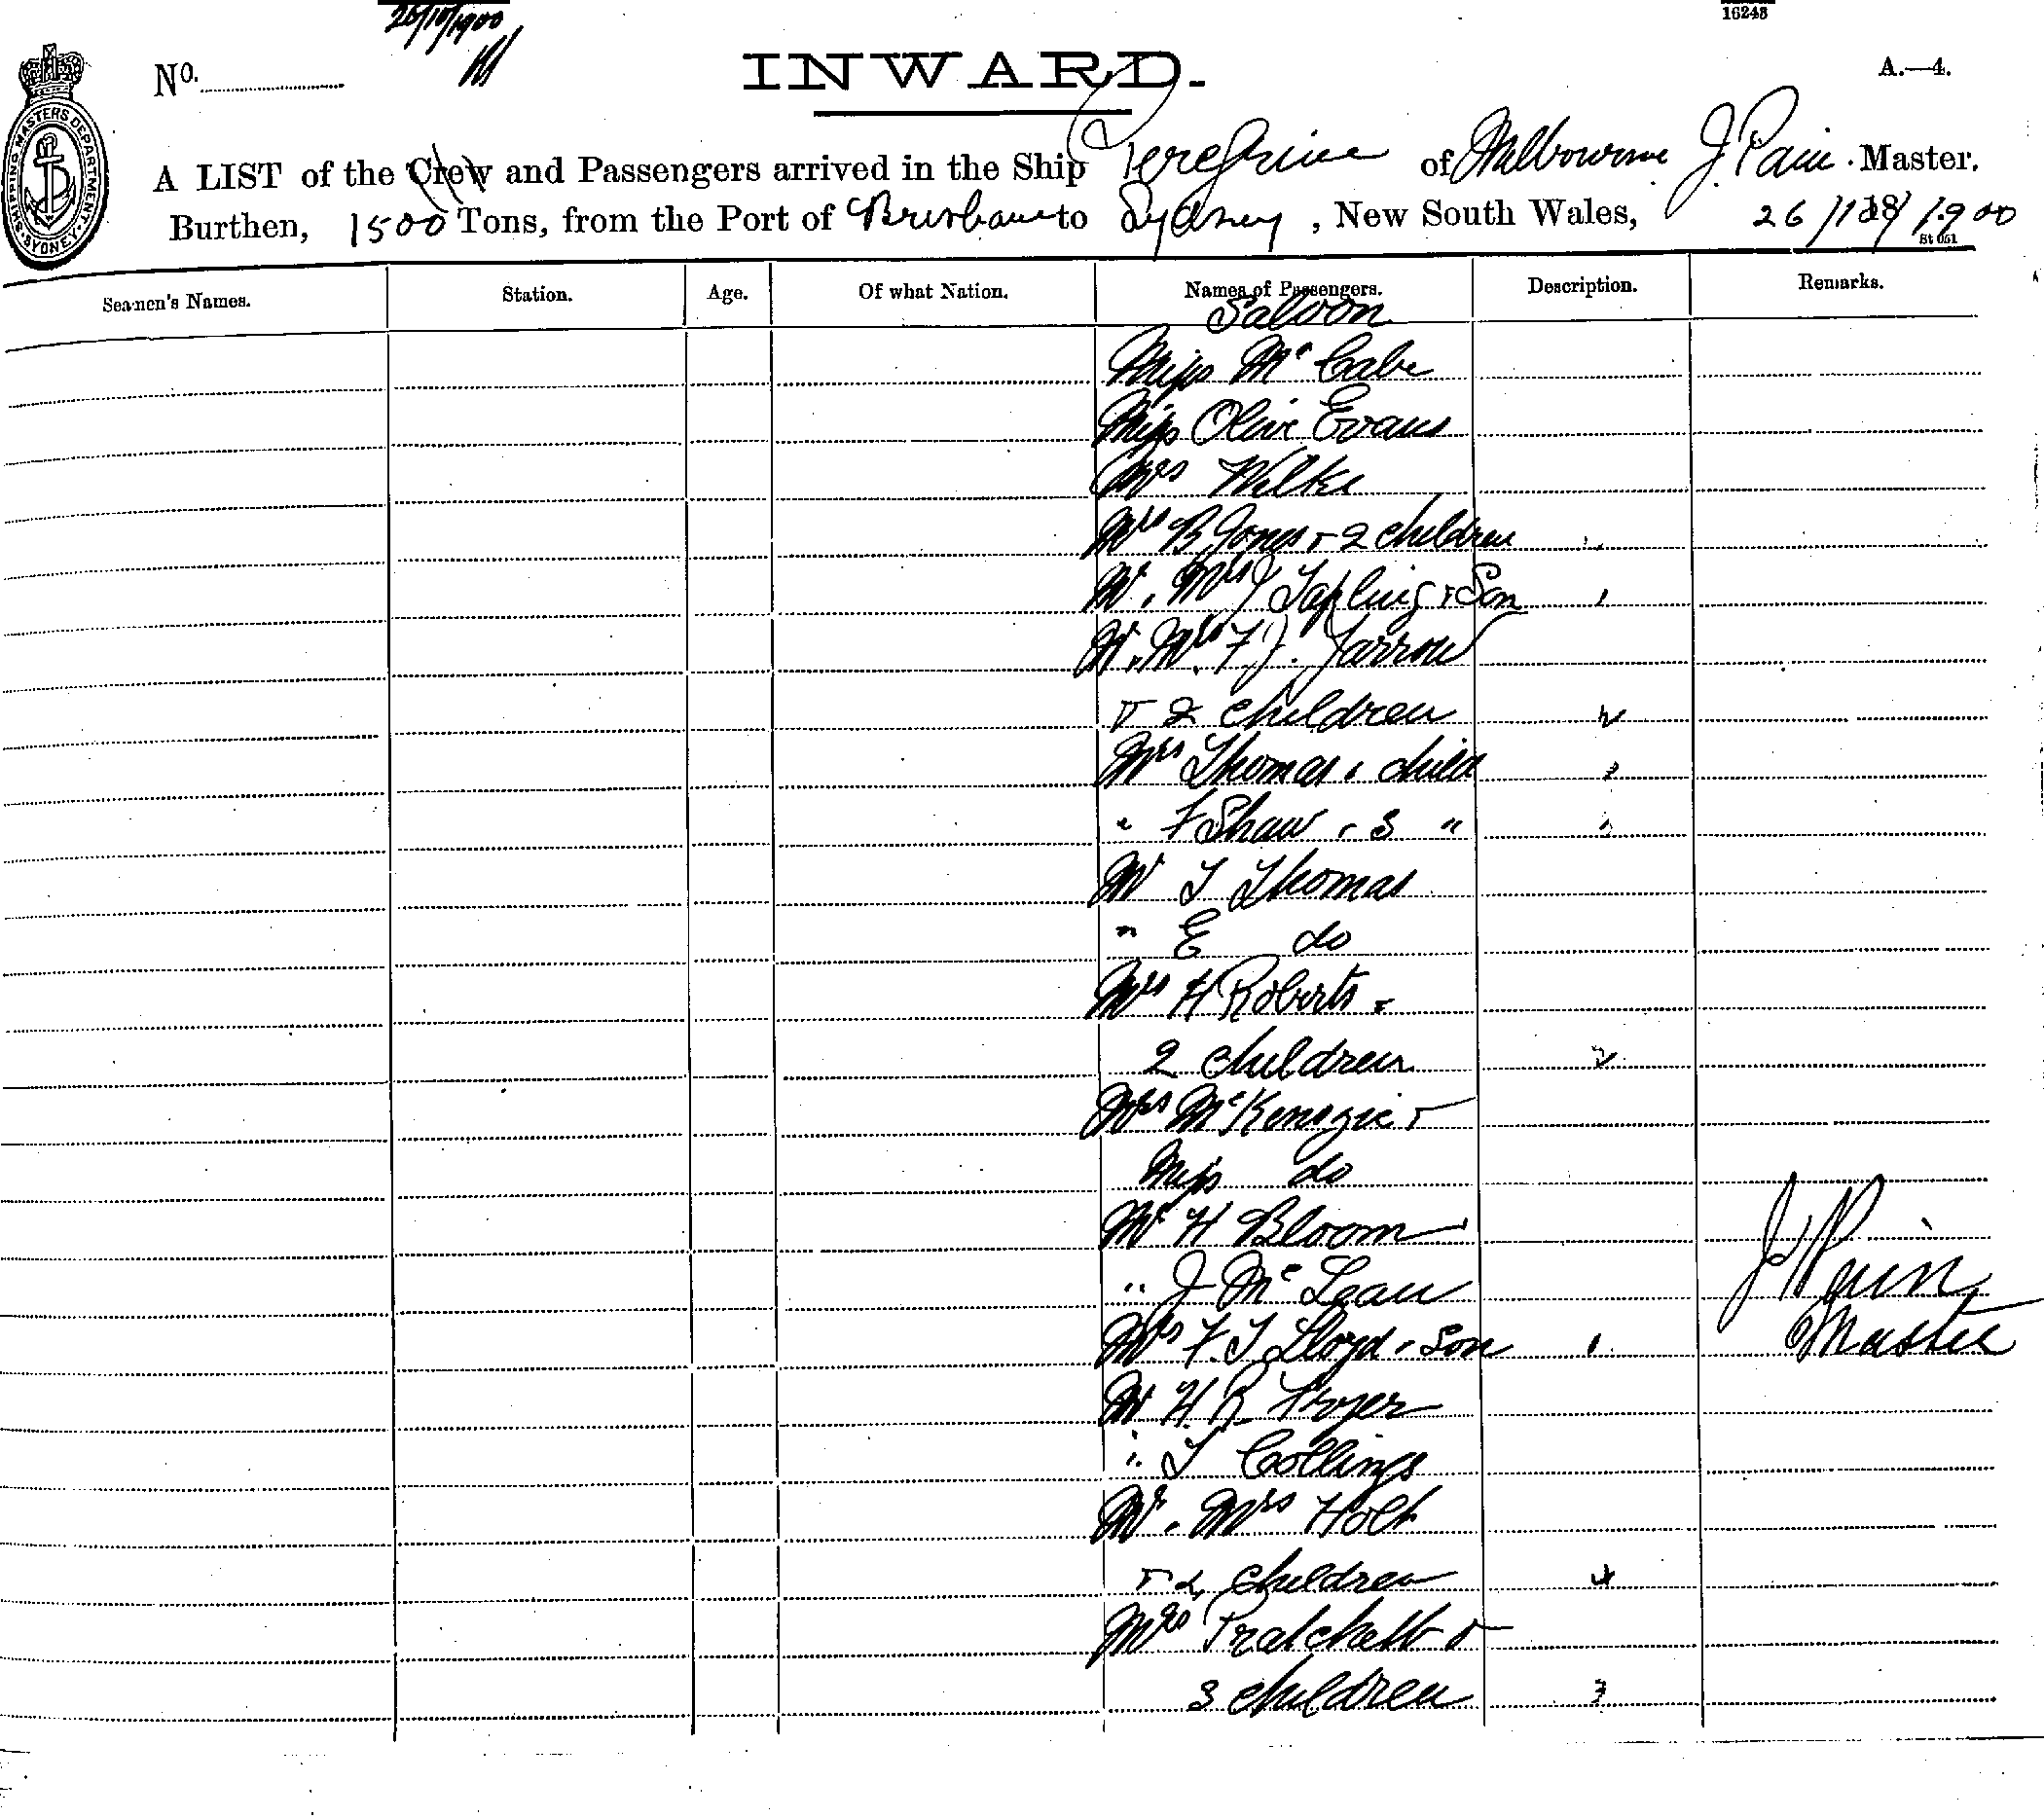 26/10/1900
16243
No.
INWARD.
A.—4.
SHIPPING MASTERS DEPARTMENT SYDNEY
A LIST of the Crew and Passengers arrived in the Ship Peregrine of Melbourne J. Pain Master.
Burthen, 1500 Tons, from the Port of Brisbane to Sydney, New South Wales, 26/10/1900
Seamen's Names. Station. Age. Of what Nation. Names of Passengers. Description. Remarks.
Saloon
Miss McCabe
Miss Olive Evans
Mrs Wilke
Mrs B Jones & 2 children
Mr & Mrs J Tapling & Son 1
Mr & Mrs F. J. Jarrow
& 2 children 2
Mrs Thomas & child
" F Shaw & 3 "
Mr T Thomas
" E do
Mrs H Roberts &
2 children 2
Mrs McKenzie &
Miss do
Mr H Bloom
" J McLean
Mrs F. T Lloyd & Son 1
Mr H. R Fryer
" T Collings
Mr & Mrs Holt
& 2 children
Mrs Pratchett &
3 children 3
J Pain
Master